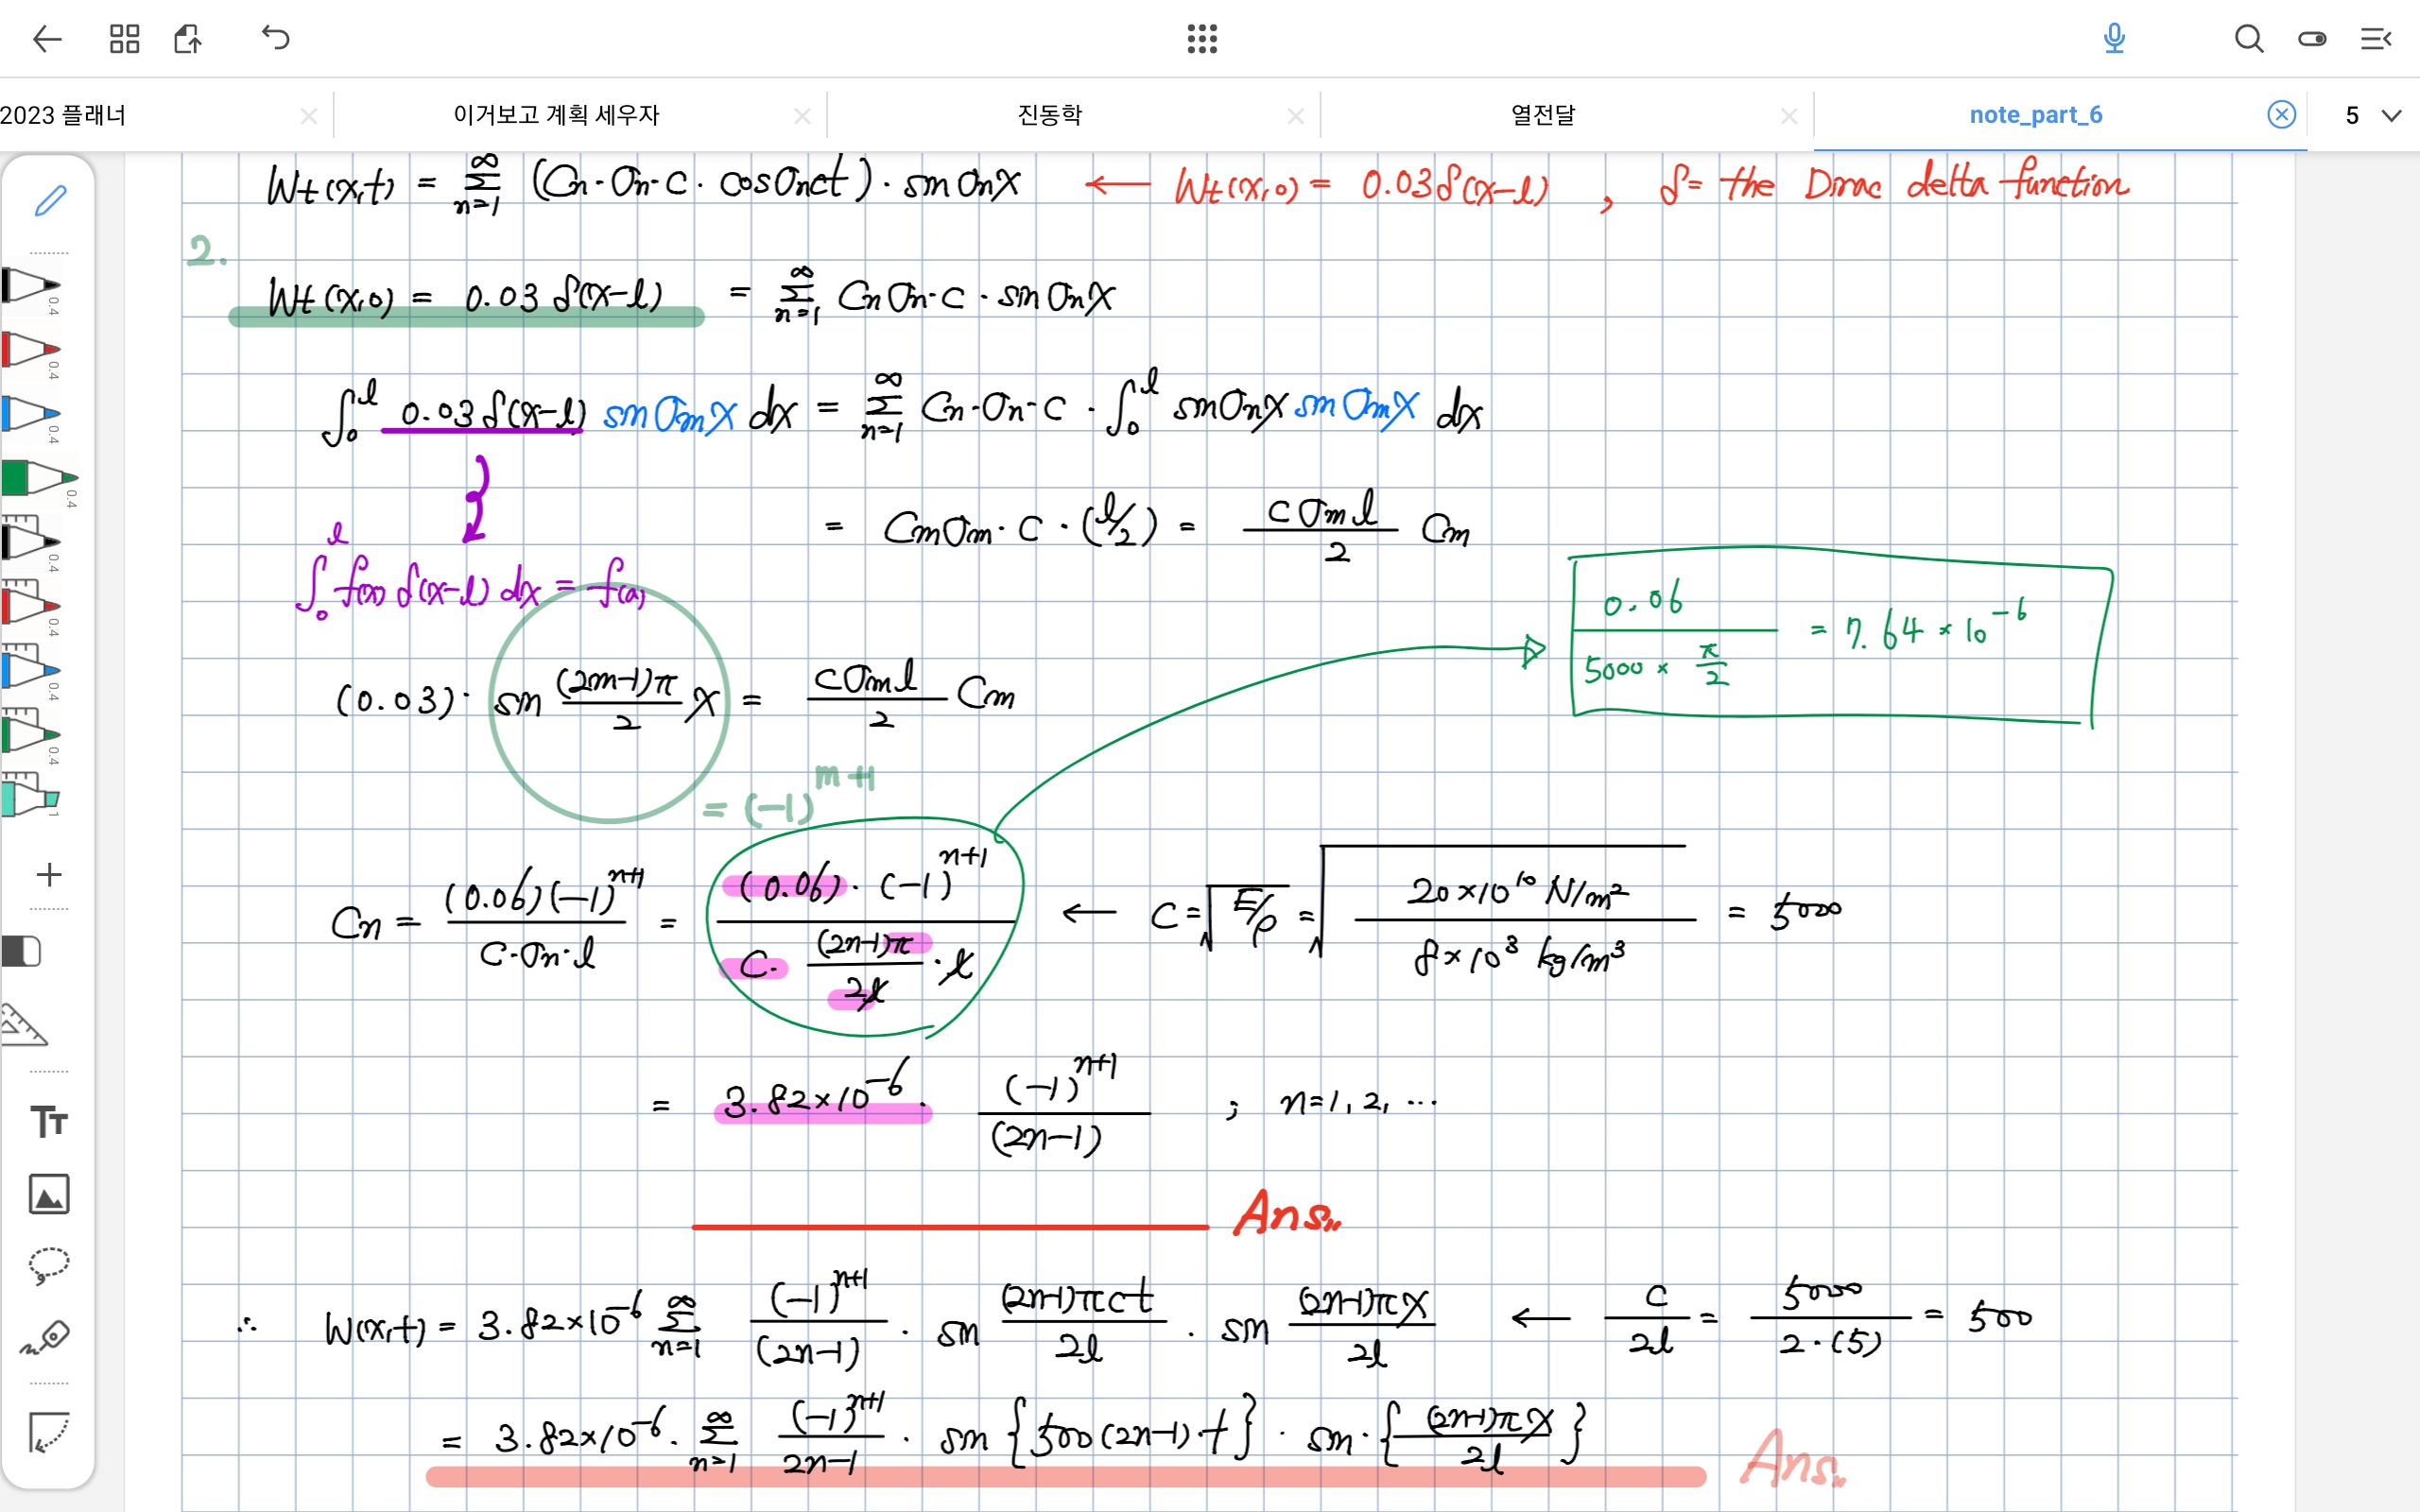 2023 플래너
이거보고 계획 세우자
진동학
열전달
note_part_6
5
Wt(x,t) = Σ_{n=1}^{∞} (Cn·σn·c·cosσnct)·sinσnx ← Wt(x,0) = 0.03δ(x-l) , δ= the Dirac delta function
2.
Wt(x,0) = 0.03 δ(x-l) = Σ_{n=1}^{∞} Cnσn·c·sinσnx
∫₀^l 0.03δ(x-l) sinσmx dx = Σ_{n=1}^{∞} Cn·σn·c·∫₀^l sinσnx sinσmx dx
= Cmσm·c·(l/2) = cσml/2 Cm
∫₀^l f(x) δ(x-l) dx = f(a)
0.06 / (5000 × π/2) = 7.64 × 10^{-6}
(0.03)· sin (2m-1)π/2 x = cσml/2 Cm
= (-1)^{m+1}
Cn = (0.06)(-1)^{n+1} / (C·σn·l) = (0.06)·(-1)^{n+1} / (C·(2n-1)π/2l·l) ← C = √(E/ρ) = √(20×10^{10} N/m² / 8×10³ kg/m³) = 5000
= 3.82×10^{-6}· (-1)^{n+1}/(2n-1) ; n=1, 2, ⋯
Ans..
∴ W(x,t) = 3.82×10^{-6} Σ_{n=1}^{∞} (-1)^{n+1}/(2n-1) · sin (2n-1)πct/2l · sin (2n-1)πx/2l ← c/2l = 5000/2·(5) = 500
= 3.82×10^{-6}· Σ_{n=1}^{∞} (-1)^{n+1}/2n-1 · sin{500(2n-1)·t}· sin·{(2n-1)πx/2l}
Ans..
0.4
0.4
0.4
0.4
0.4
0.4
0.4
0.4
1
TT